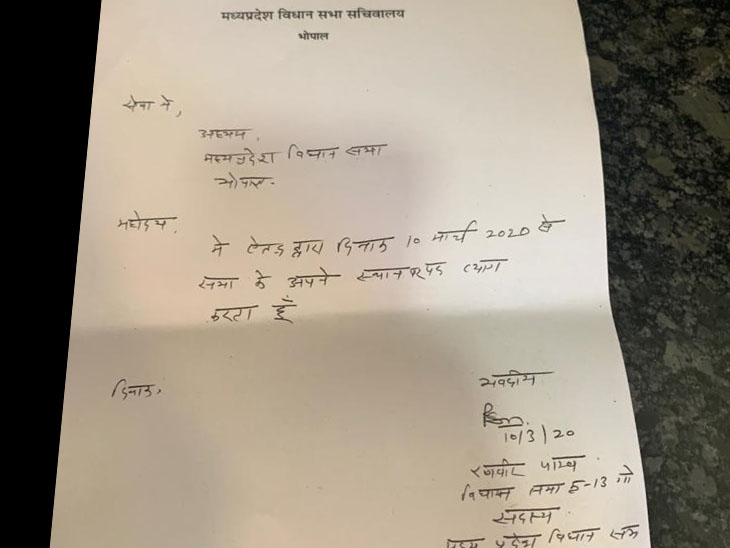 मध्यप्रदेश विधान सभा सचिवालय
भोपाल
सेवा में,
अध्यक्ष,
मध्यप्रदेश विधान सभा
भोपाल.
महोदय,
में ऐतद् द्वारा दिनांक 10 मार्च 2020 से
सभा के अपने स्थान पद त्याग
करता हूँ
दिनांक,
भवदीय
10/3/20
रणवीर जाटव
विधान सभा क्षे-13 गो
सदस्य
मध्य प्रदेश विधान सभा